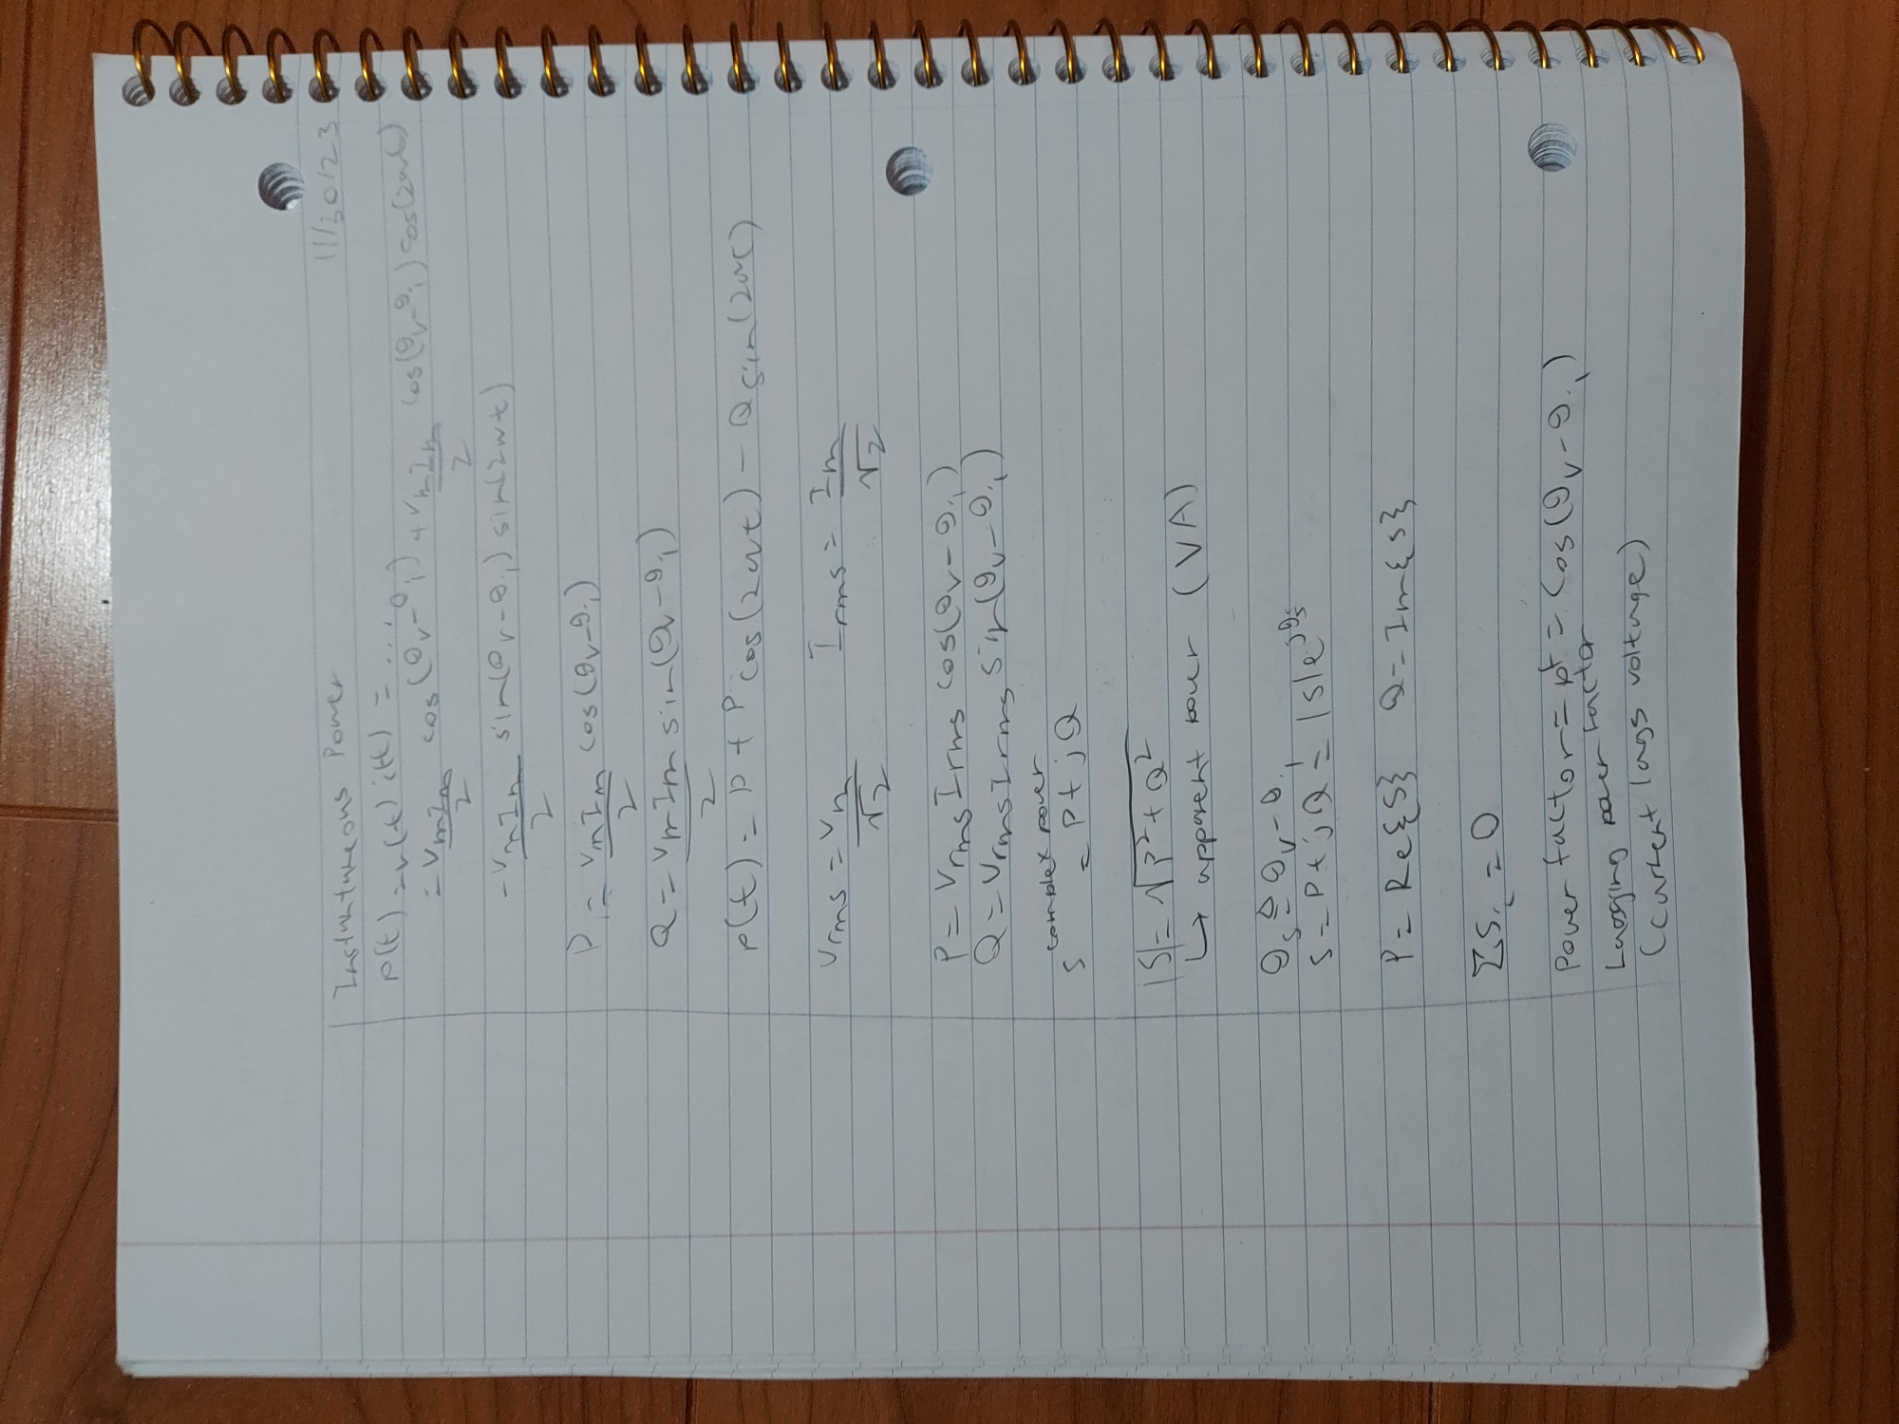 11/30/23
Instantaneous Power
p(t) = v(t) i(t) = ...
= VmIm/2 cos(θv-θi) + VmIm/2 cos(θv-θi) cos(2ωt)
- VmIm/2 sin(θv-θi) sin(2ωt)
P = VmIm/2 cos(θv-θi)
Q = VmIm/2 sin(θv-θi)
p(t) = P + P cos(2ωt) - Q sin(2ωt)
Vrms = Vm/√2 Irms = Im/√2
P = VrmsIrms cos(θv-θi)
Q = VrmsIrms sin(θv-θi)
complex power
S = P + jQ
|S| = √P²+Q²
↳ apparent power (VA)
θs ≜ θv-θi
S = P + jQ = |S|e^jθs
P = Re{S} Q = Im{S}
ΣSi = 0
Power factor = pf = cos(θv-θi)
Lagging power factor
(current lags voltage)